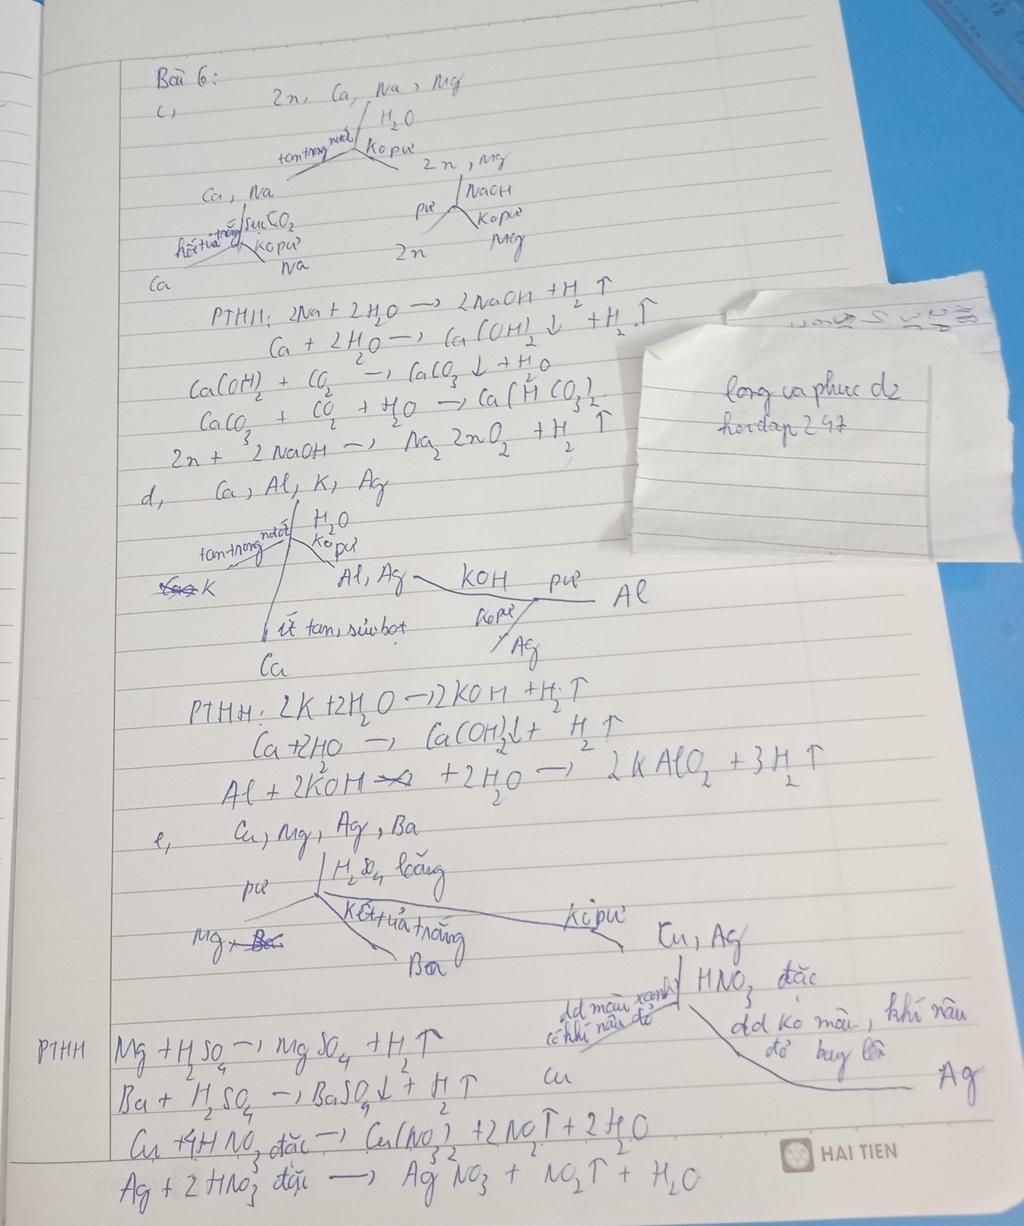 Bài 6:
c, Zn, Ca, Na, Mg
H₂O
tan trong nước Ko pư
Zn, Mg
Ca, Na
NaOH
pư Ko pư
Zn Mg
Sục CO₂
kết tủa trắng Ko pư
Ca Na
PTHH: 2Na + 2H₂O → 2NaOH + H₂↑
Ca + 2H₂O → Ca(OH)₂↓ + H₂↑
Ca(OH)₂ + CO₂ → CaCO₃↓ + H₂O
CaCO₃ + CO₂ + H₂O → Ca(HCO₃)₂
Zn + 2NaOH → Na₂ZnO₂ + H₂↑
long ca phuc d2
hoidap247
d, Ca, Al, K, Ag
H₂O
tan trong nước Ko pư
K Al, Ag KOH pư Al
Ko pư
Ag
ít tan, sủi bọt
Ca
PTHH: 2K + 2H₂O → 2KOH + H₂↑
Ca + 2H₂O → Ca(OH)₂↓ + H₂↑
Al + 2KOH + 2H₂O → 2KAlO₂ + 3H₂↑
e, Cu, Mg, Ag, Ba
H₂SO₄ loãng
pư Kết tủa trắng Ko pư
Mg, Ba Cu, Ag
HNO₃ đặc
dd màu xanh
có khí nâu đỏ
dd ko màu, khí nâu
đỏ bay lên
Cu Ag
PTHH Mg + H₂SO₄ → MgSO₄ + H₂↑
Ba + H₂SO₄ → BaSO₄↓ + H₂↑
Cu + 4HNO₃ đặc → Cu(NO₃)₂ + 2NO₂↑ + 2H₂O
Ag + 2HNO₃ đặc → AgNO₃ + NO₂↑ + H₂O
HAI TIEN